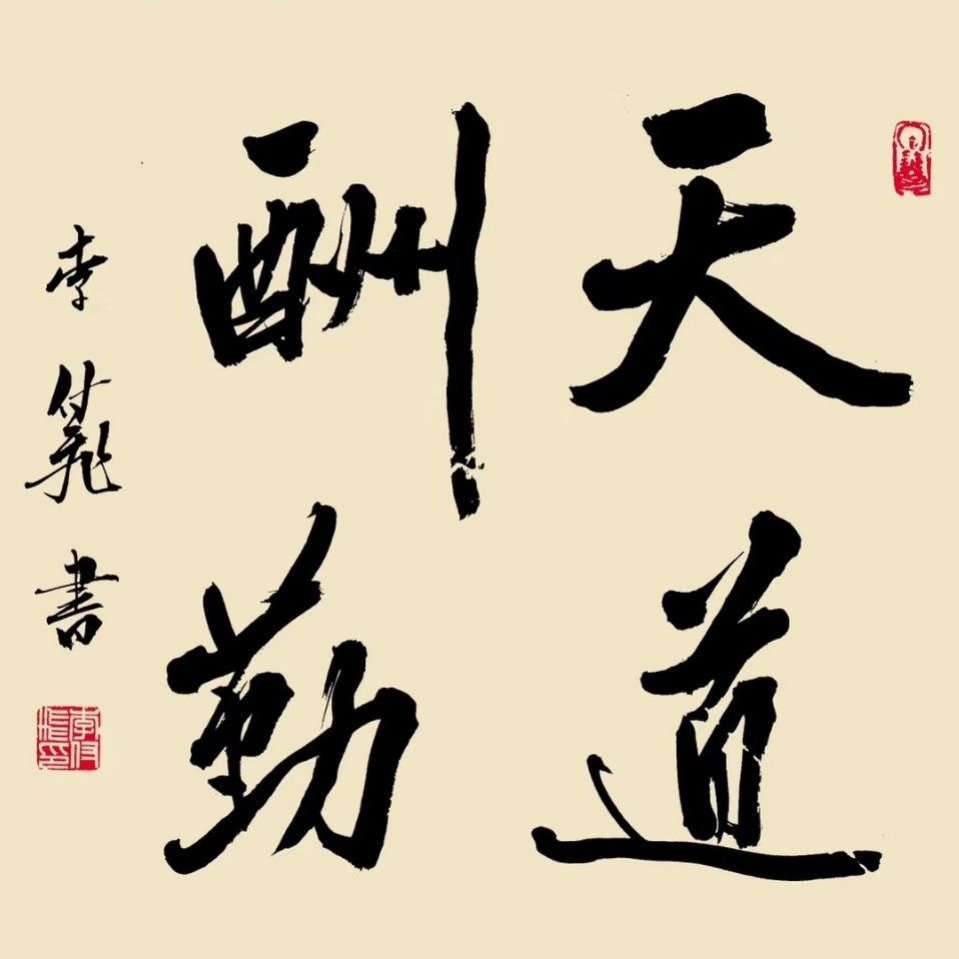 天道
酬勤
李付書